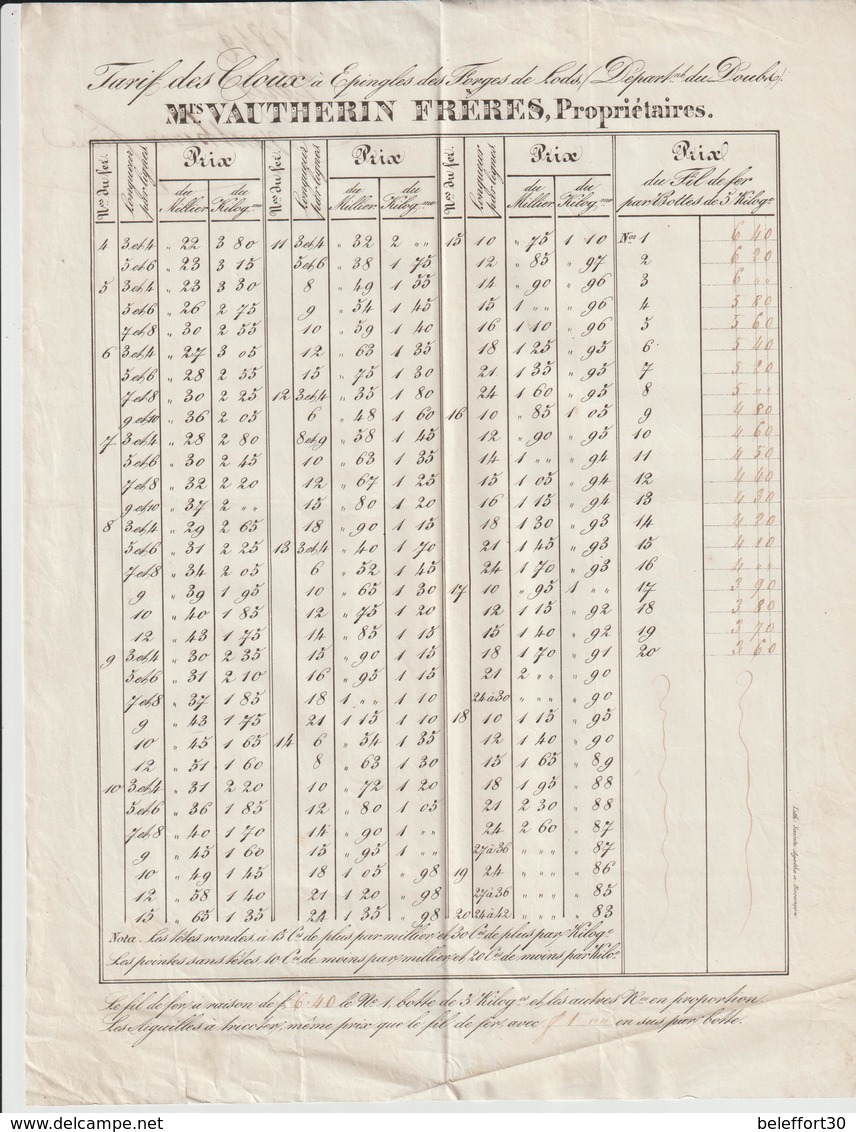 Tarif des Cloux à Epingles des Forges de Lods, (Départ.nt du Doubs).
Mrs. VAUTHERIN FRÈRES, Propriétaires.
Nos. du fer. Longueur par lignes Prix du Millier du Kilog.me Nos. du fer. Longueur par lignes Prix du Millier du Kilog.me Nos. du fer. Longueur par lignes Prix du Millier du Kilog.me Prix du Fil de fer par Bottes de 5 Kilog.s
4 3 et 4 " 22 3 80 11 3 et 4 " 32 2 " " 15 10 " 75 1 10 Nos 1 6 40
5 et 6 " 23 3 15 5 et 6 " 38 1 75 12 " 85 " 97 2 6 20
5 3 et 4 " 23 3 30 8 " 49 1 55 14 " 90 " 96 3 6 " "
5 et 6 " 26 2 75 9 " 54 1 45 15 1 " " " 96 4 5 80
7 et 8 " 30 2 55 10 " 59 1 40 16 1 10 " 96 5 5 60
6 3 et 4 " 27 3 05 12 " 63 1 35 18 1 25 " 95 6 5 40
5 et 6 " 28 2 55 15 " 75 1 30 21 1 35 " 95 7 5 20
7 et 8 " 30 2 25 12 3 et 4 " 35 1 80 24 1 60 " 95 8 5 " "
9 et 10 " 36 2 05 6 " 48 1 60 16 10 " 85 1 05 9 4 80
7 3 et 4 " 28 2 80 8 et 9 " 58 1 45 12 " 90 " 95 10 4 60
5 et 6 " 30 2 45 10 " 63 1 35 14 1 " " " 94 11 4 50
7 et 8 " 32 2 20 12 " 67 1 25 15 1 05 " 94 12 4 40
9 et 10 " 37 2 " " 15 " 80 1 20 16 1 15 " 94 13 4 30
8 3 et 4 " 29 2 65 18 " 90 1 15 18 1 30 " 93 14 4 20
5 et 6 " 31 2 25 13 3 et 4 " 40 1 70 21 1 45 " 93 15 4 10
7 et 8 " 34 2 05 6 " 52 1 45 24 1 70 " 93 16 4 " "
9 " 39 1 95 10 " 65 1 30 17 10 " 95 1 " " 17 3 90
10 " 40 1 85 12 " 75 1 20 12 1 15 " 92 18 3 80
12 " 43 1 75 14 " 85 1 15 15 1 40 " 92 19 3 70
9 3 et 4 " 30 2 35 15 " 90 1 15 18 1 70 " 91 20 3 60
5 et 6 " 31 2 10 16 " 95 1 15 21 2 " " " 90
7 et 8 " 37 1 85 18 1 " " 1 10 24 à 30 " " " " 90
9 " 43 1 75 21 1 15 1 10 18 10 1 15 " 95
10 " 45 1 65 14 6 " 54 1 35 12 1 40 " 90
12 " 51 1 60 8 " 63 1 30 15 1 65 " 89
10 3 et 4 " 31 2 20 10 " 72 1 20 18 1 95 " 88
5 et 6 " 36 1 85 12 " 80 1 05 21 2 30 " 88
7 et 8 " 40 1 70 14 " 90 1 " " 24 2 60 " 87
9 " 45 1 60 15 " 95 1 " " 27 à 36 " " " " 87
10 " 49 1 45 18 1 05 " 98 19 24 " " " " 86
12 " 58 1 40 21 1 20 " 98 27 à 36 " " " " 85
15 " 65 1 35 24 1 35 " 98 20 24 à 42 " " " " 83
Nota. Les têtes rondes à 15 C.es de plus par millier et 30 C.es de plus par Kilog.e
Les pointes sans têtes 10 C.es de moins par millier et 20 C.es de moins par Kilo.e
Le fil de fer à raison de f. 6.40 le No. 1, botte de 5 Kilog.es et les autres Nos en proportion.
Les Aiguilles à tricoter, même prix que le fil de fer, avec f 1 " " en sus par botte.
beleffort30